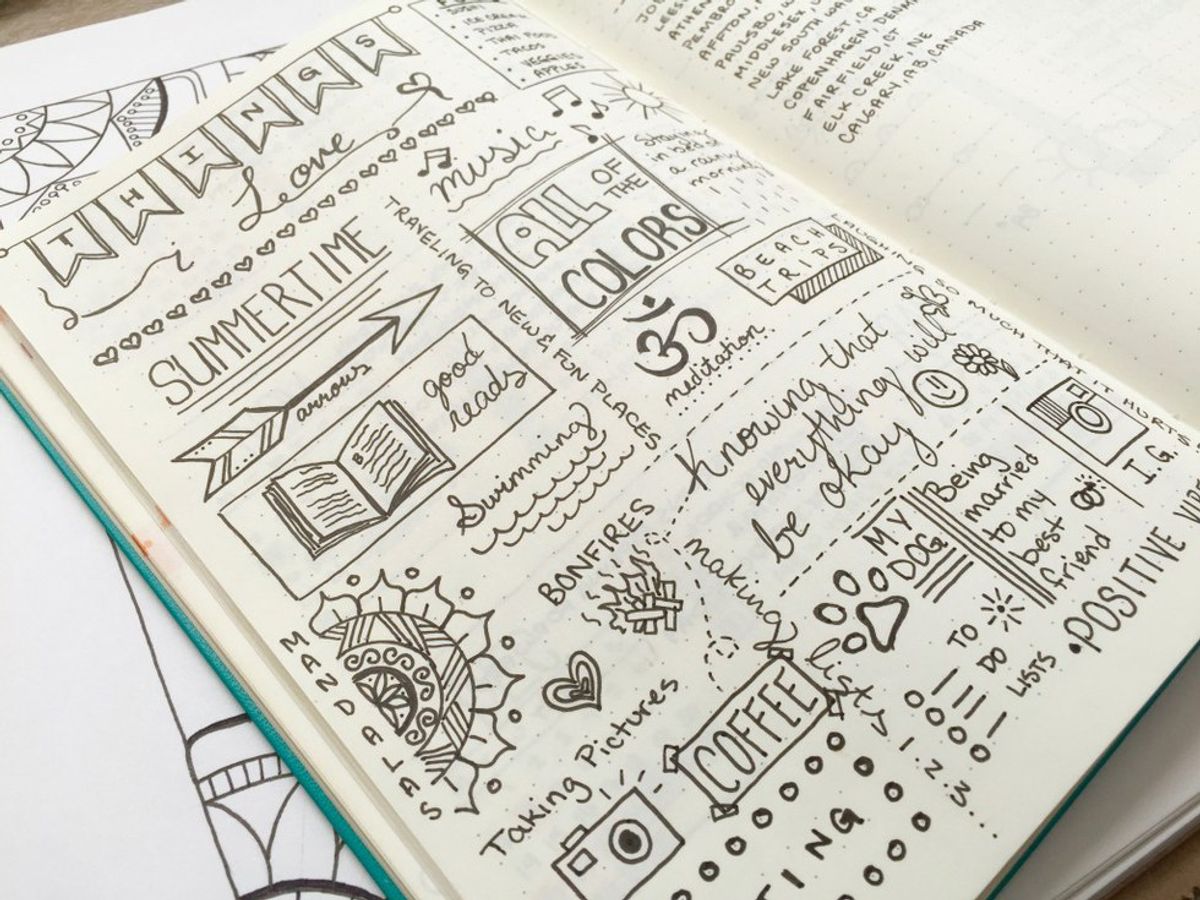 THINGS
i Love
SUMMERTIME
arrows
good
reads
MANDALAS
ICE CREAM
PIZZA
THAI FOOD
TACOS
VEGGIES
APPLES
music
TRAVELING TO NEW & FUN PLACES
Swimming
BONFIRES
Taking Pictures
ALL OF
THE
COLORS
Staying
in bed on
a rainy
morning
BEACH
TRIPS
ॐ
meditation
LAUGHING SO MUCH THAT IT HURTS
Knowing that
everything will
be okay
making
lists
COFFEE
MY
DOG
Being
married
to my
best
friend
I.G.
POSITIVE
TO
DO
LISTS
1.
2.
3.
TING
PEMBRO
AFFTON,
PAULSBO, W
MIDDLESEX,
NEW SOUTH WA
LAKE FOREST, CA
COPENHAGEN, DENM
FAIRFIELD, CT
ELK CREEK, NE
CALGARY, AB, CANADA